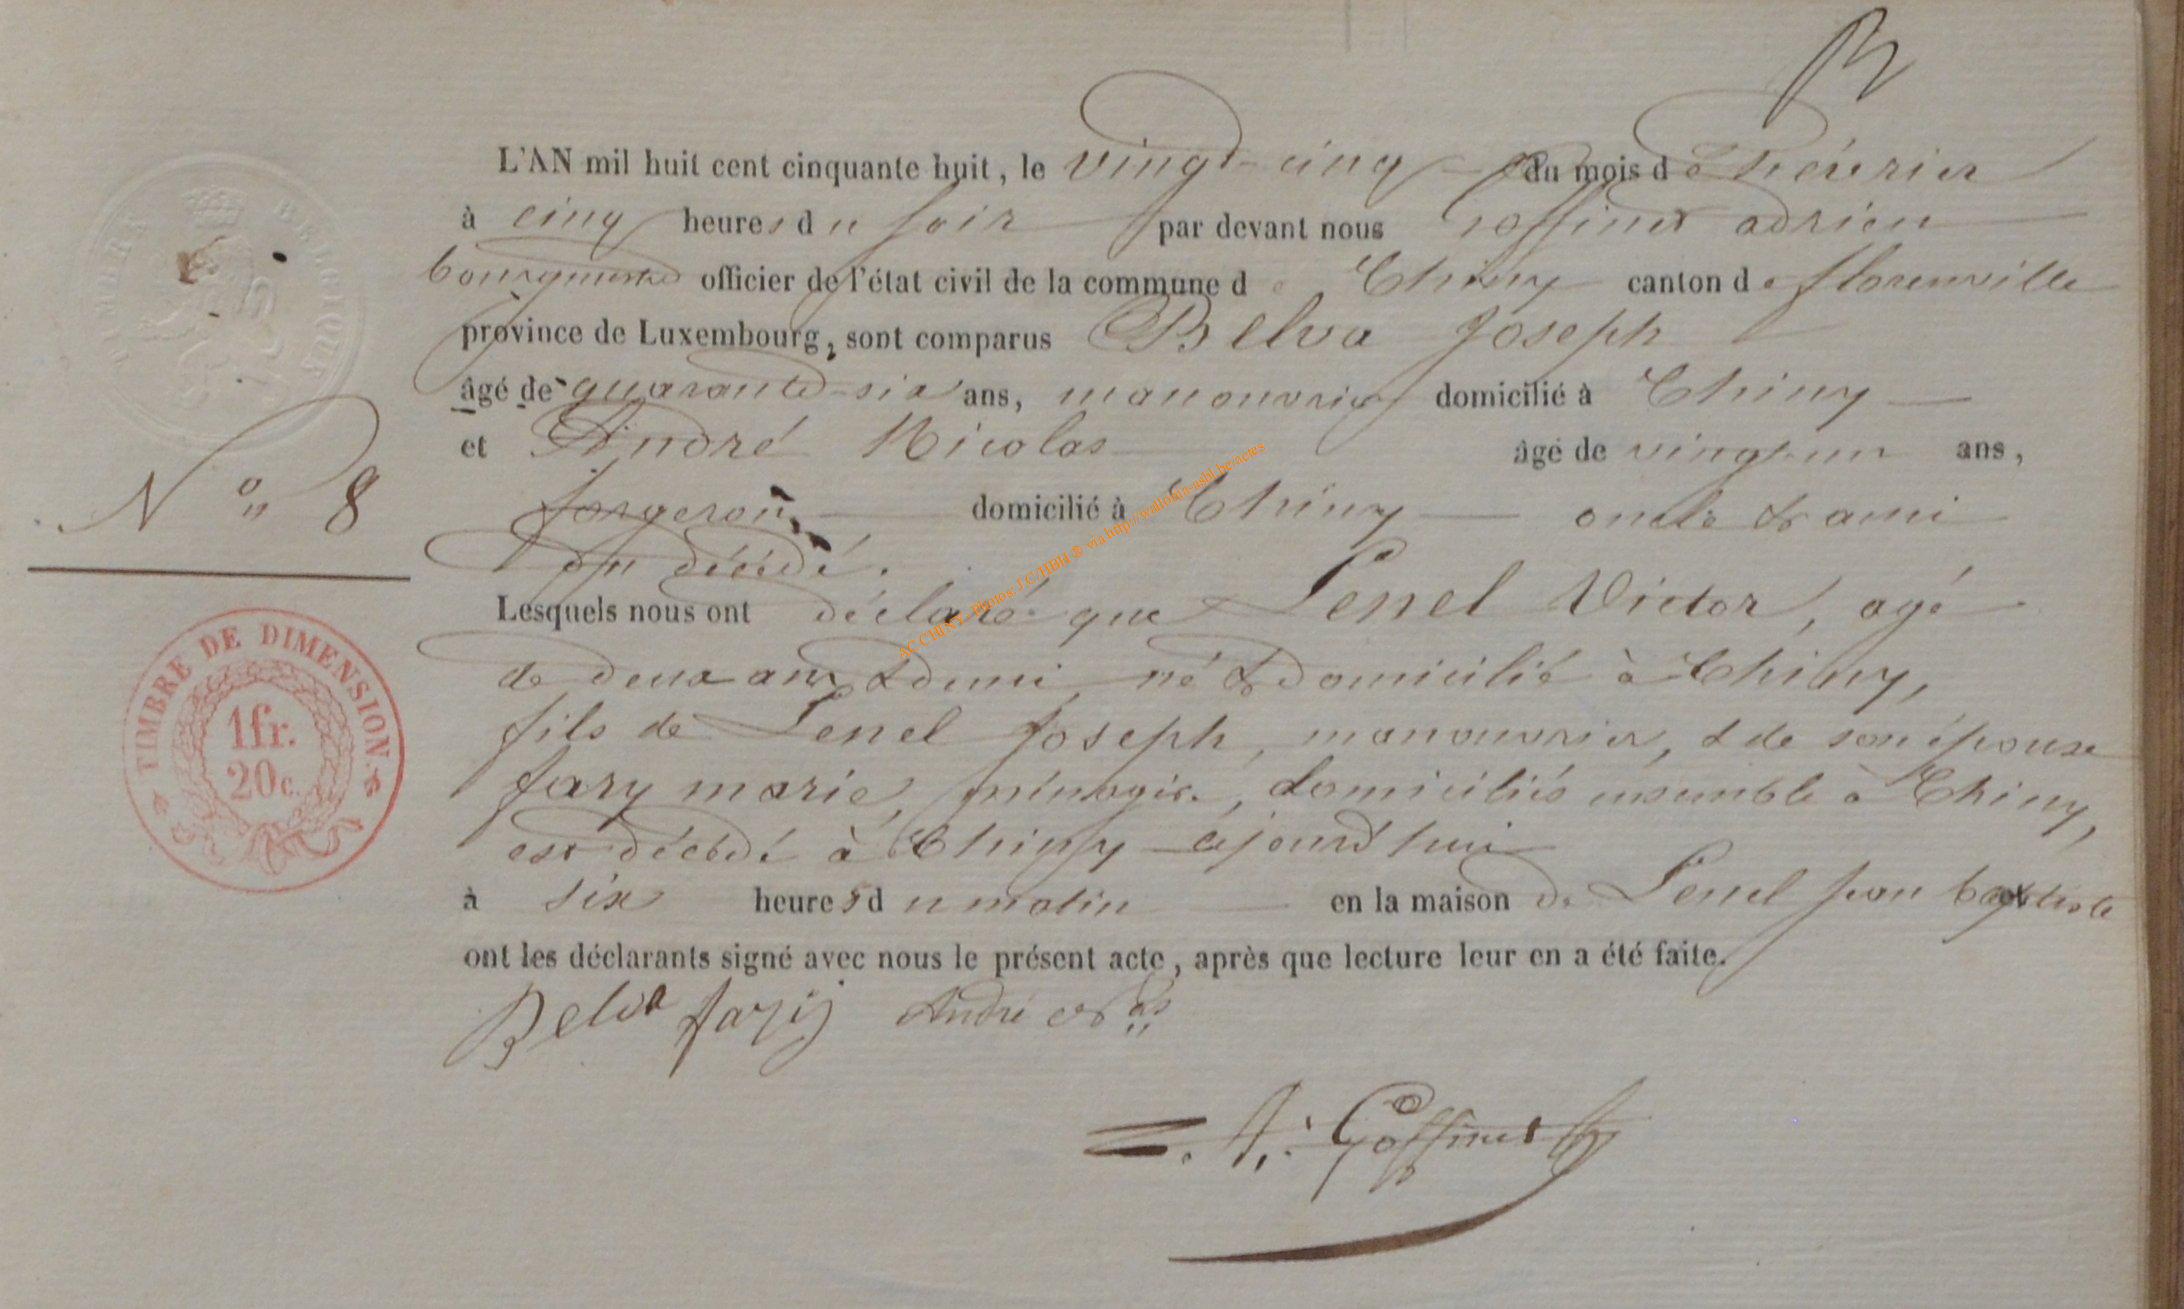 L'AN mil huit cent cinquante huit, le vingt-cinq du mois de février
à cinq heures du soir par devant nous Goffinet adrien
bourgmestre officier de l'état civil de la commune de Chiny canton de florenville
province de Luxembourg, sont comparus Belva Joseph
âgé de quarante-six ans, manouvrier domicilié à Chiny
et André Nicolas âgé de vingt-un ans,
N° 8
forgeron, domicilié à Chiny oncle & ami
du décédé.
Lesquels nous ont déclaré que Lenel Victor, agé
de deux ans & demi, né & domicilié à Chiny,
fils de Lenel Joseph, manouvrier, & de son épouse
fary marie, ménagère, domiciliés ensemble à Chiny,
est décédé à Chiny cejourd'hui
à six heures du matin en la maison de Lenel jean baptiste
ont les déclarants signé avec nous le présent acte, après que lecture leur en a été faite.
Belva fary André Nas
A. Goffinet
TIMBRE BELGIQUE
TIMBRE DE DIMENSION.
1fr.
20c.
AC CHINY Photos J.C HBH ® via http://wallonia-asbl.be/actes